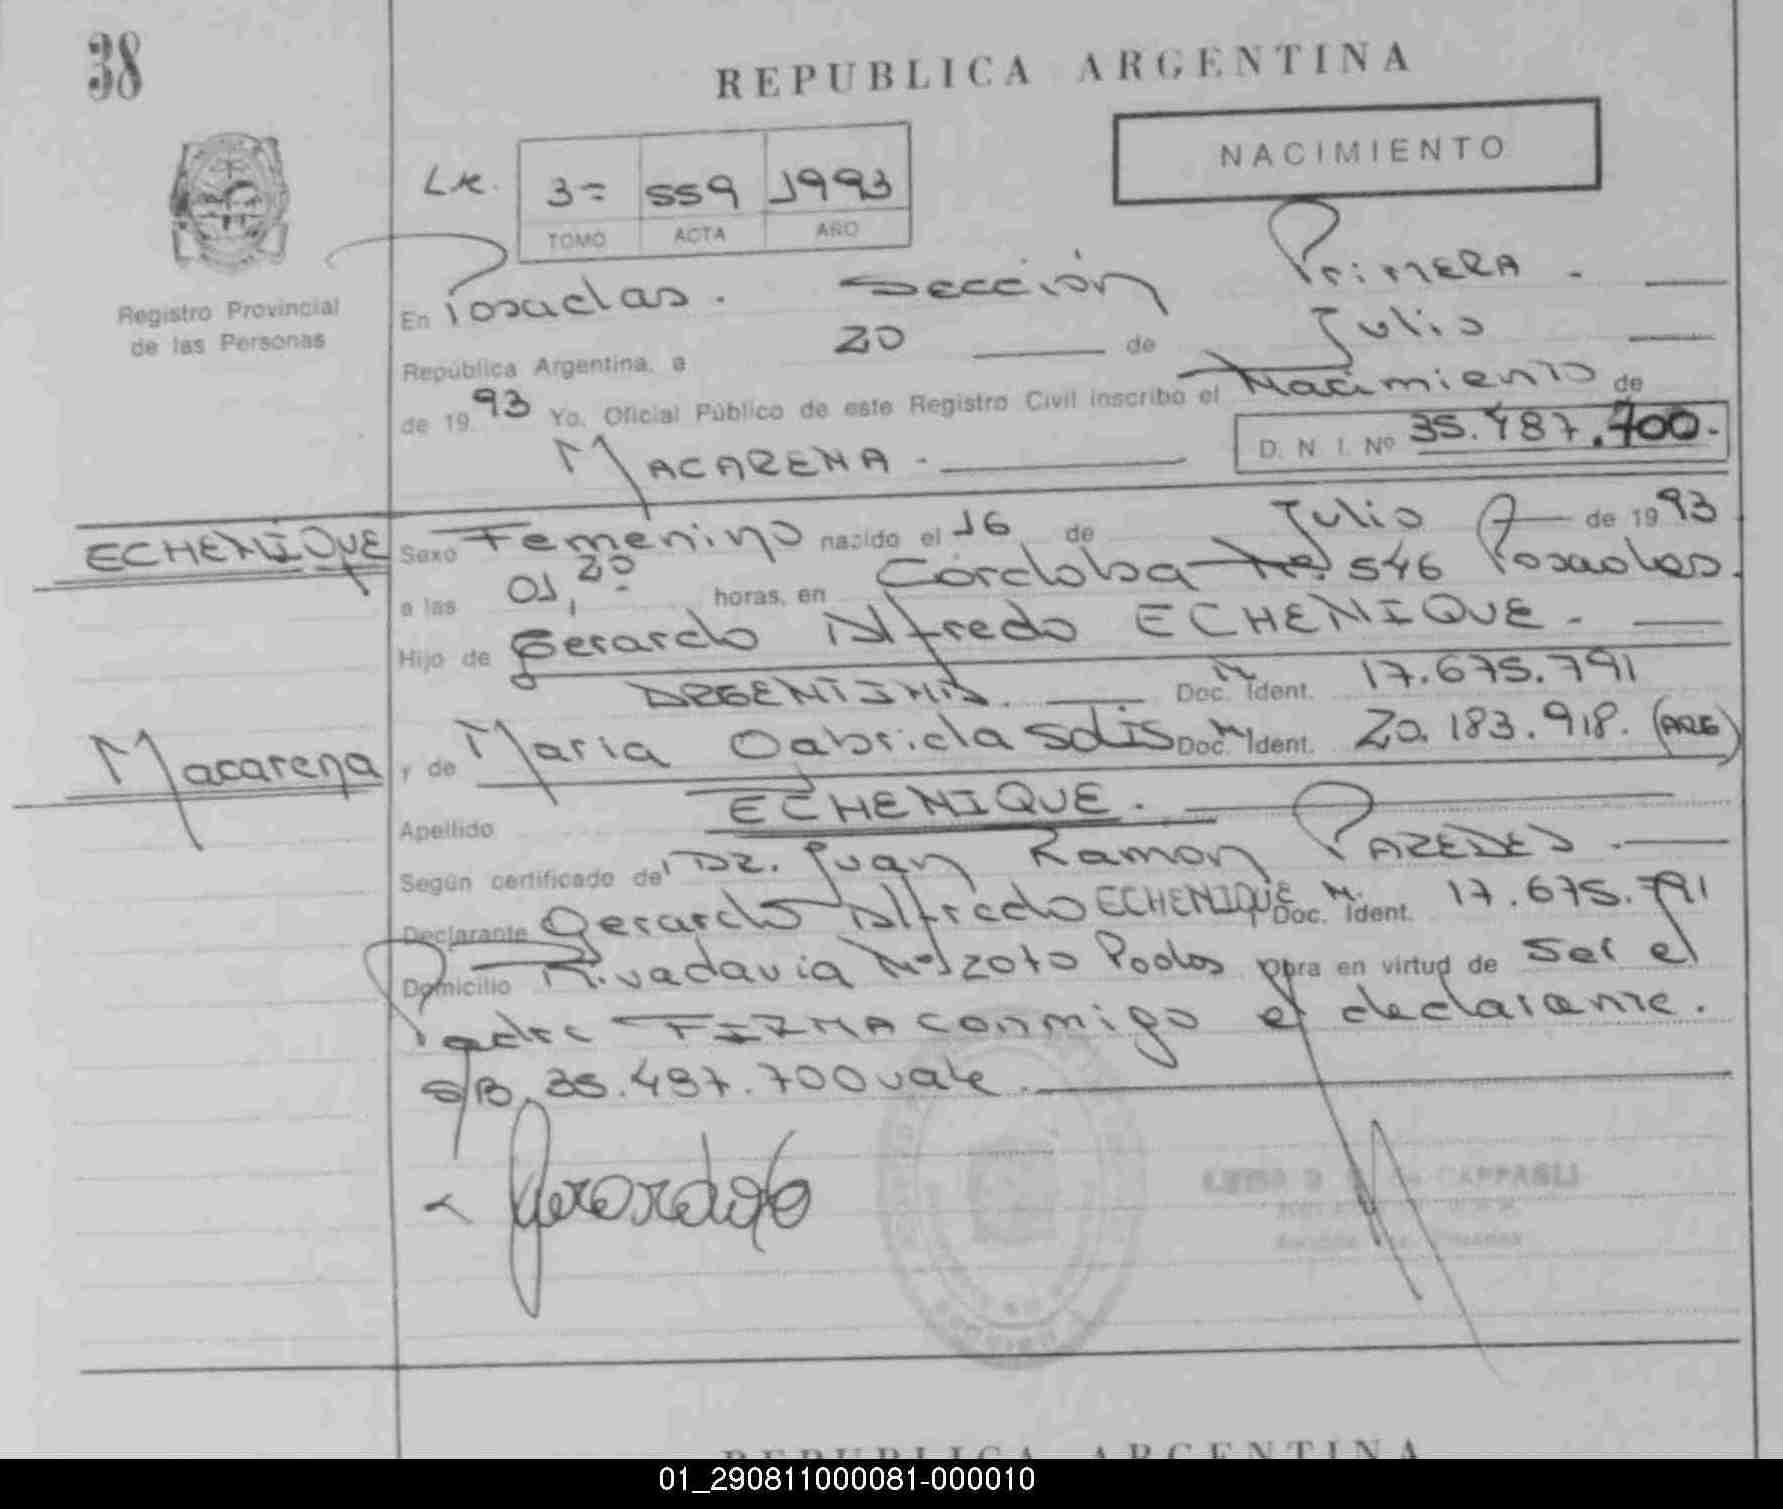 38
REPUBLICA ARGENTINA
NACIMIENTO
3= 559 1993
TOMO ACTA AÑO
Registro Provincial
de las Personas
En Posadas. Sección Primera.
República Argentina, a 20 de Julio
de 1993 Yo, Oficial Público de este Registro Civil inscribo el Nacimiento de
MACARENA. D. N. I. Nº 35.487.700.
ECHENIQUE
Sexo Femenino nacido el 16 de Julio de 1993
a las 01,20 horas, en Córdoba Nº 546 Posadas.
Hijo de Gerardo Alfredo ECHENIQUE.
ARGENTINA Doc. Ident. 17.675.791
Macarena
y de Maria Gabriela SOLIS Doc. Ident. 20.183.918. (ARG)
Apellido ECHENIQUE.
Según certificado del DR. Juan Ramon PAREDES.
Declarante Gerardo Alfredo ECHENIQUE Doc. Ident. 17.675.791
Domicilio Rivadavia Nº 2070 Pdas obra en virtud de ser el
Padre FIRMA conmigo el declarante.
S/B. 35.487.700 vale.
REPUBLICA ARGENTINA
01_290811000081-000010